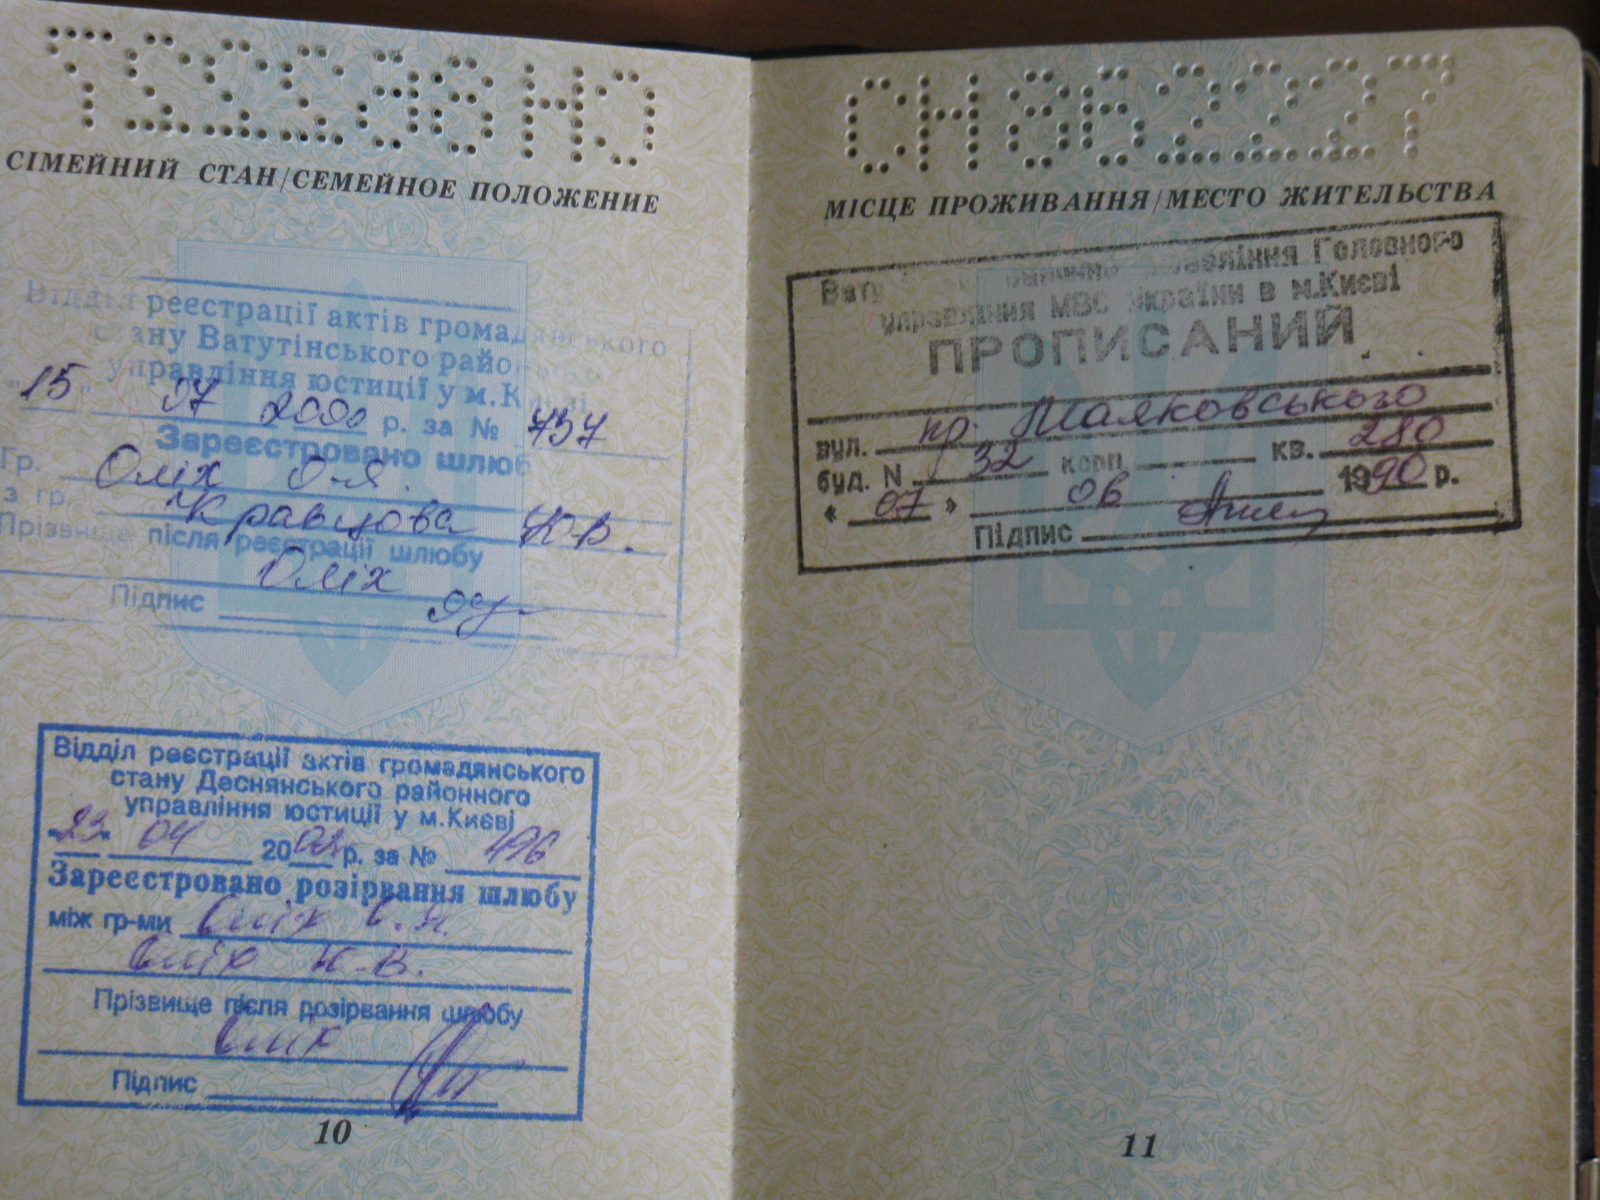 СІМЕЙНИЙ СТАН/СЕМЕЙНОЕ ПОЛОЖЕНИЕ
Відділ реєстрації актів громадянського
стану Ватутінського районного
управління юстиції у м.Києві
"15" 07 2000 р. за № 737
Зареєстровано шлюб
Гр. Оліх О.Я.
з гр. Кравцова Ю.В.
Прізвище після реєстрації шлюбу
Оліх
Підпис
Відділ реєстрації актів громадянського
стану Деснянського районного
управління юстиції у м.Києві
"23" 04 2002 р. за № 496
Зареєстровано розірвання шлюбу
між гр-ми Оліх О.Я.
Оліх Ю.В.
Прізвище після розірвання шлюбу
Оліх
Підпис
10
СН862227
МІСЦЕ ПРОЖИВАННЯ/МЕСТО ЖИТЕЛЬСТВА
управління Головного
управління МВС України в м.Києві
ПРОПИСАНИЙ
вул. пр. Маяковського
буд. N 32 корп. кв. 280
« 07 » 08 1990 р.
Підпис
11